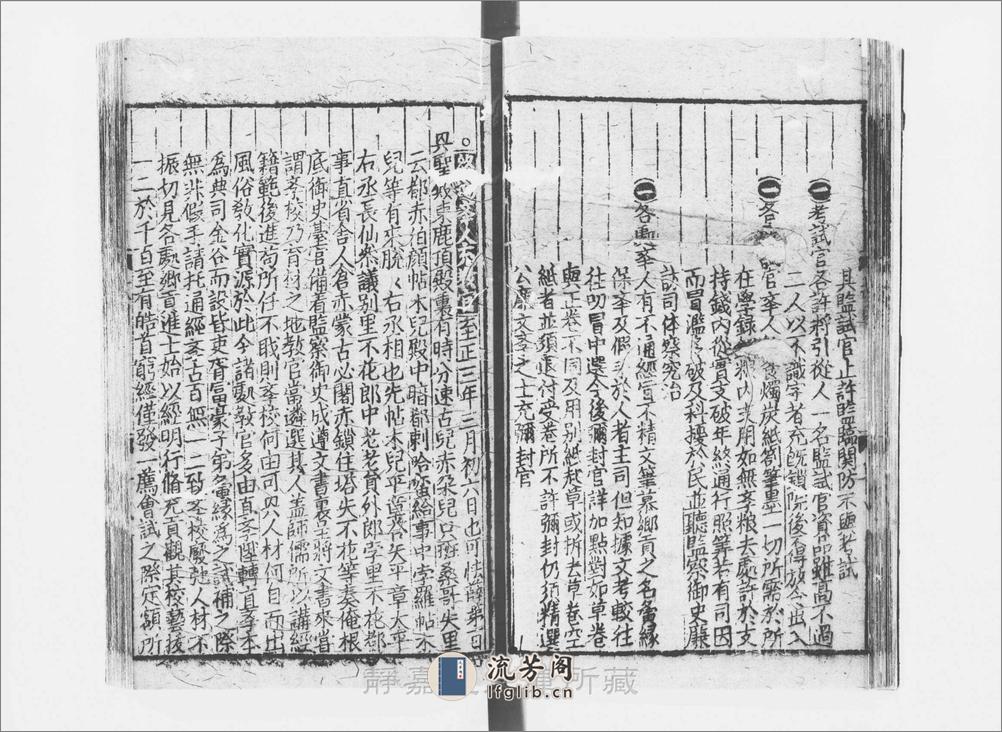 其監試官止許監臨關防不與考試
一考試官各許將引從人一名監試官資品雖高不過
二人以不識字者充旣鎖院後不得放令出入
一各
官舉人
燭炭紙劄筆墨一切所需於所
在學錄
粮內支用如無斈粮去處許於支
持錢內從實支破年終通行照筭若有司因
而冒濫
破及科擾於民並聽監察御史廉
訪司体察究治
一各
舉人有不通經
不精文筆慕鄉貢之名夤緣
保舉及假手於人者主司但知據文考較往
往叨冒中選今後彌封官詳加點對如草卷
與正卷不同及用別紙起草或拆去草卷空
紙者並須退付受卷所不許彌封仍須精選
公廉文斈之士充彌封官
至正三年三月初六日也可怯薛第
日
鹿頂殿裏有時分速古兒赤朶兒只班桑哥失里
云都赤伯顏帖木兒殿中暗都剌哈蠻給事中孛羅帖木
兒等有來脫〻右丞相也先帖木兒平章
帖木兒平章太平
右丞長仙叅議別里不花郎中老老員外郎孛里不花都
事直省舍人倉赤蒙古必闍赤鎖住塔失不花等奏俺根
底御史臺官備着監察御史成遵文書裏呈將文書來省
謂斈校乃育材之地教官當遴選其人盖師儒所以講經
籍範後進苟所任不戝則斈校何由可
人材何自而出
風俗敎化實源於此今諸
敎官多由直斈
轉直斈本
爲典司金谷而設皆吏
富豪子弟夤緣爲之試補之際
無非假手請托通經斈古百無一二致斈校廢弛人材不
振切見各處鄉貢進士始以經明行脩充貢觀其校藝拔
一二於千百至有皓首窮經僅發一薦會試之際定額所
静嘉
所藏
流芳阁
lfglib.cn